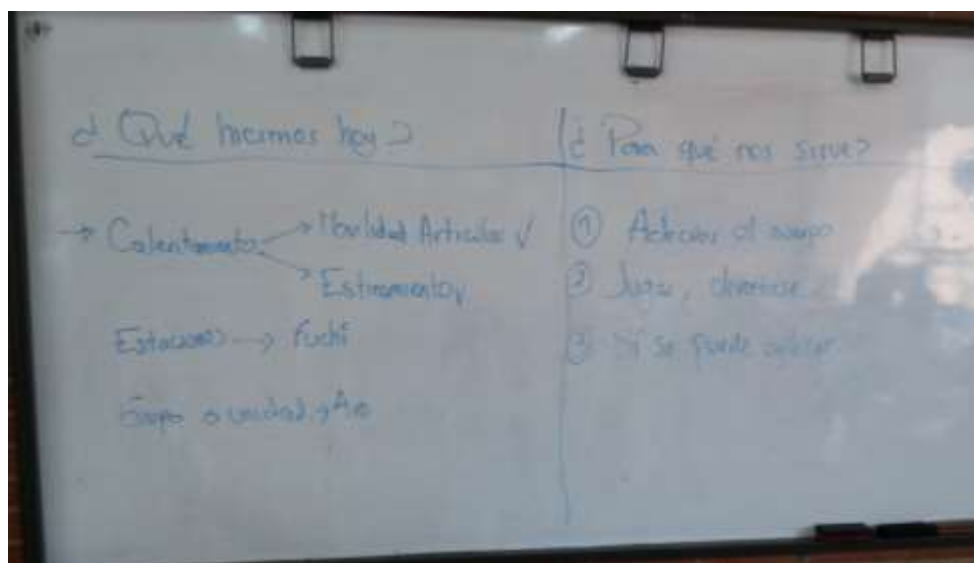 ¿Qué hicimos hoy?
→ Calentamiento → Movilidad Articular ✓
→ Estiramiento ✓
Estaciones → Fuchi
Grupo o unidad →
¿Para qué nos sirve?
① Activar el cuerpo
② Jugar, divertirse
③ Si se puede